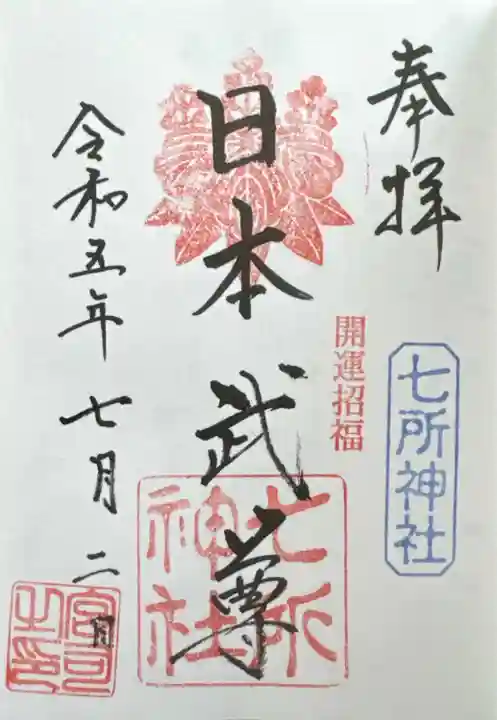 奉拝
七所神社
開運招福
日本武尊
七所神社
令和五年七月二日
宮司之印